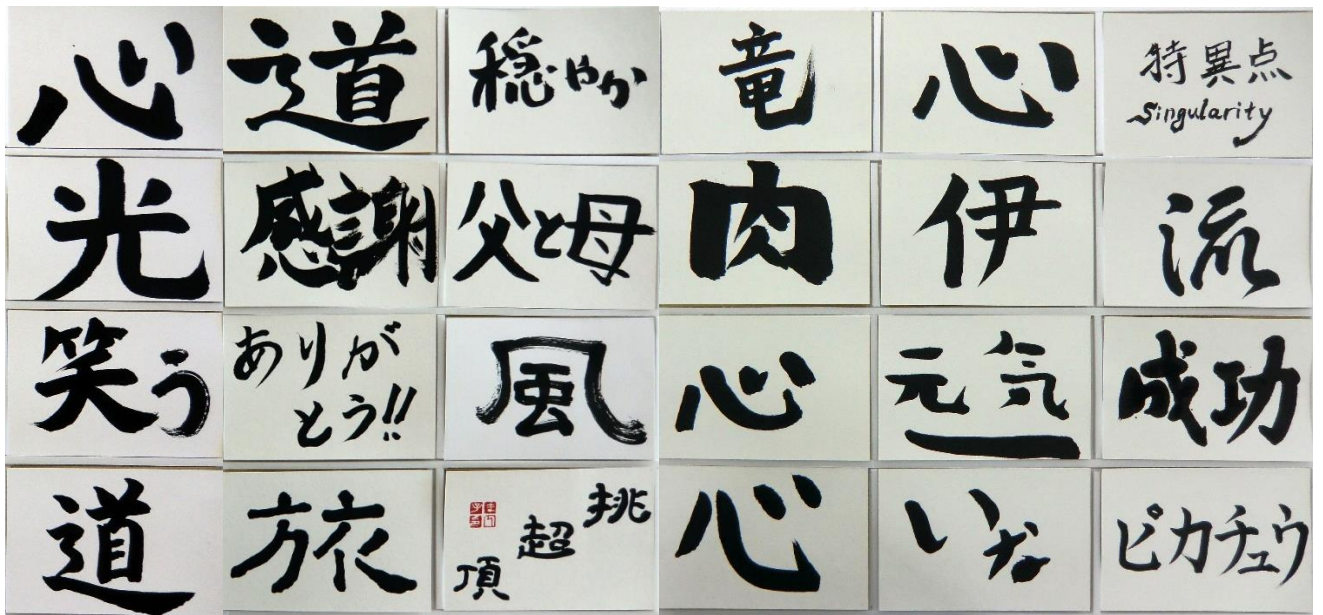 心
道
穏やか
竜
心
特異点
Singularity
光
感謝
父と母
肉
伊
流
笑う
ありが
とう!!
風
心
元気
成功
道
旅
挑
超
頂
心
いな
ピカチュウ